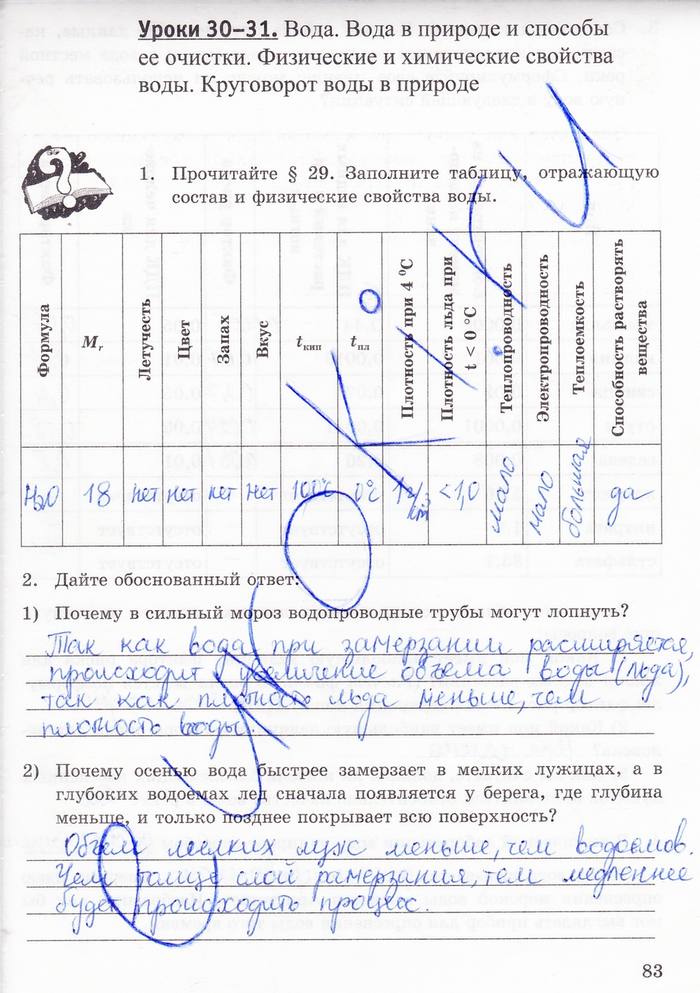 Уроки 30–31. Вода. Вода в природе и способы
ее очистки. Физические и химические свойства
воды. Круговорот воды в природе
1. Прочитайте § 29. Заполните таблицу, отражающую
состав и физические свойства воды.
Формула
Mr
Летучесть
Цвет
Запах
Вкус
tкип
tпл
Плотность при 4 °C
Плотность льда при
t < 0 °C
Теплопроводность
Электропроводность
Теплоемкость
Способность растворять
вещества
H2O 18 нет нет нет нет 100°C 0°C <1,0 мало мало большая да
2. Дайте обоснованный ответ:
1) Почему в сильный мороз водопроводные трубы могут лопнуть?
Так как вода при замерзании расширяется,
происходит увеличение объема воды (льда),
так как плотность льда меньше, чем
плотность воды.
2) Почему осенью вода быстрее замерзает в мелких лужицах, а в
глубоких водоемах лед сначала появляется у берега, где глубина
меньше, и только позднее покрывает всю поверхность?
Объем мелких луж меньше, чем водоемов.
Чем толще слой замерзания, тем медленнее
будет происходить процесс.
83